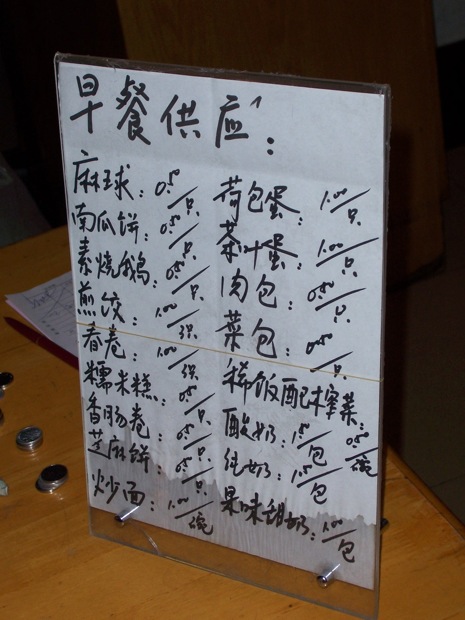 早餐供应:
麻球: 0.50/只
南瓜饼: 0.50/只
素烧鹅: 0.50/只
煎饺: 1.00/3只
春卷: 1.00/3只
糯米糕: 0.50/只
香肠卷: 0.50/只
芝麻饼: 0.50/只
炒面: 1.00/碗
荷包蛋: 1.00/只
茶叶蛋: 1.00/只
肉包: 0.50/只
菜包: 0.50/只
稀饭配榨菜: 0.50/碗
酸奶: 1.5/包
纯奶: 1.5/包
果味甜奶: 1.00/包